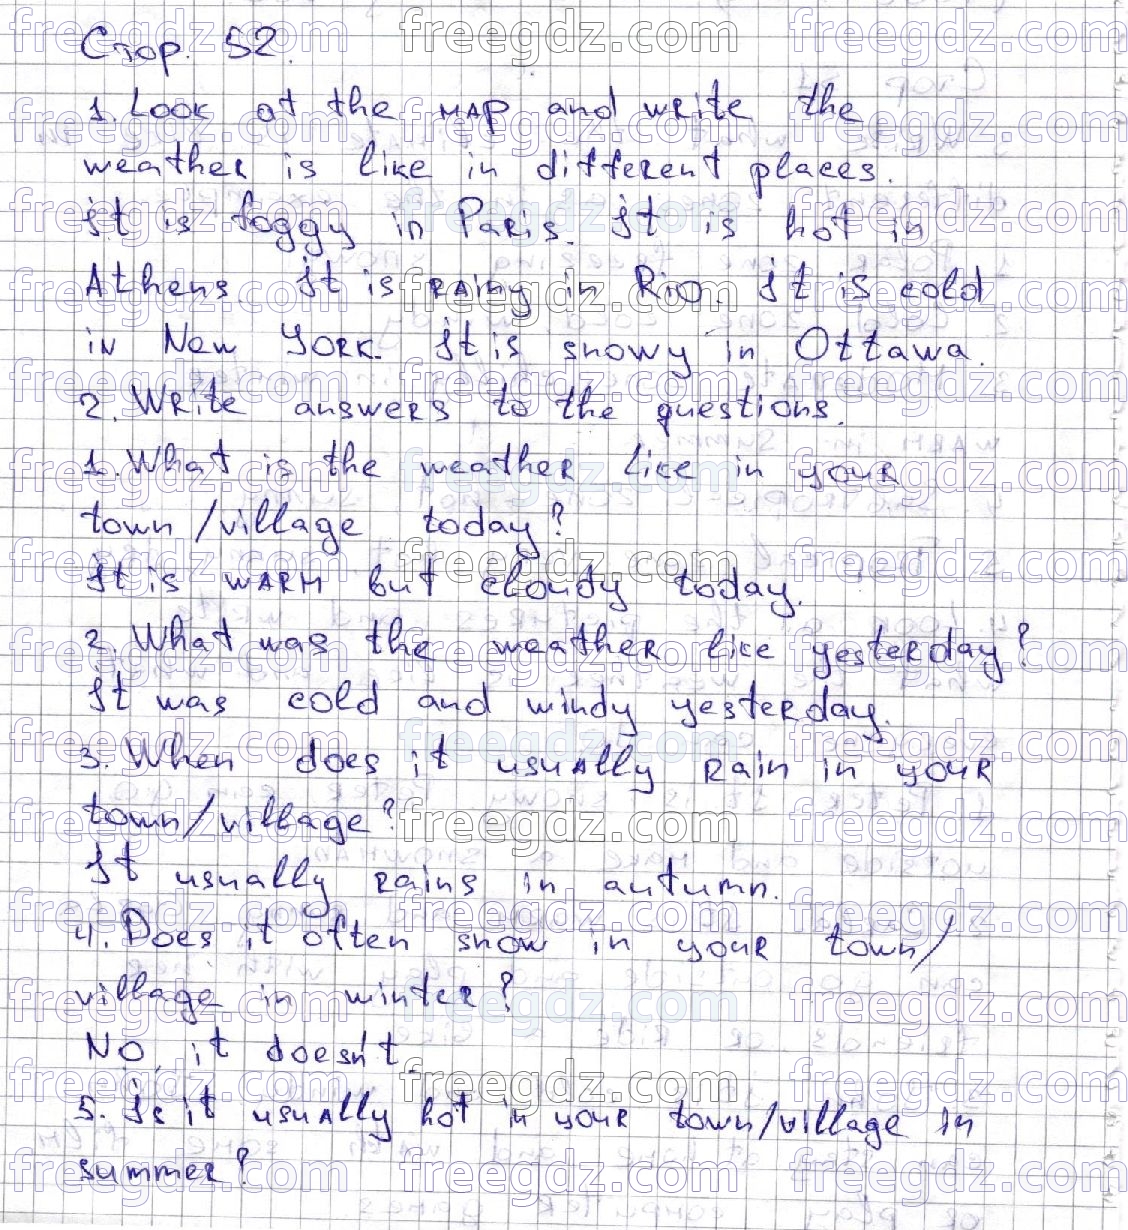 Стор. 52.
1. Look at the map and write the
weather is like in different places.
It is foggy in Paris. It is hot in
Athens. It is rainy in Rio. It is cold
in New York. It is snowy in Ottawa.
2. Write answers to the questions.
1. What is the weather like in your
town/village today?
It is warm but cloudy today.
2. What was the weather like yesterday?
It was cold and windy yesterday.
3. When does it usually rain in your
town/village?
It usually rains in autumn.
4. Does it often snow in your town/
village in winter?
No, it doesn't.
5. Is it usually hot in your town/village in
summer?
freegdz.com